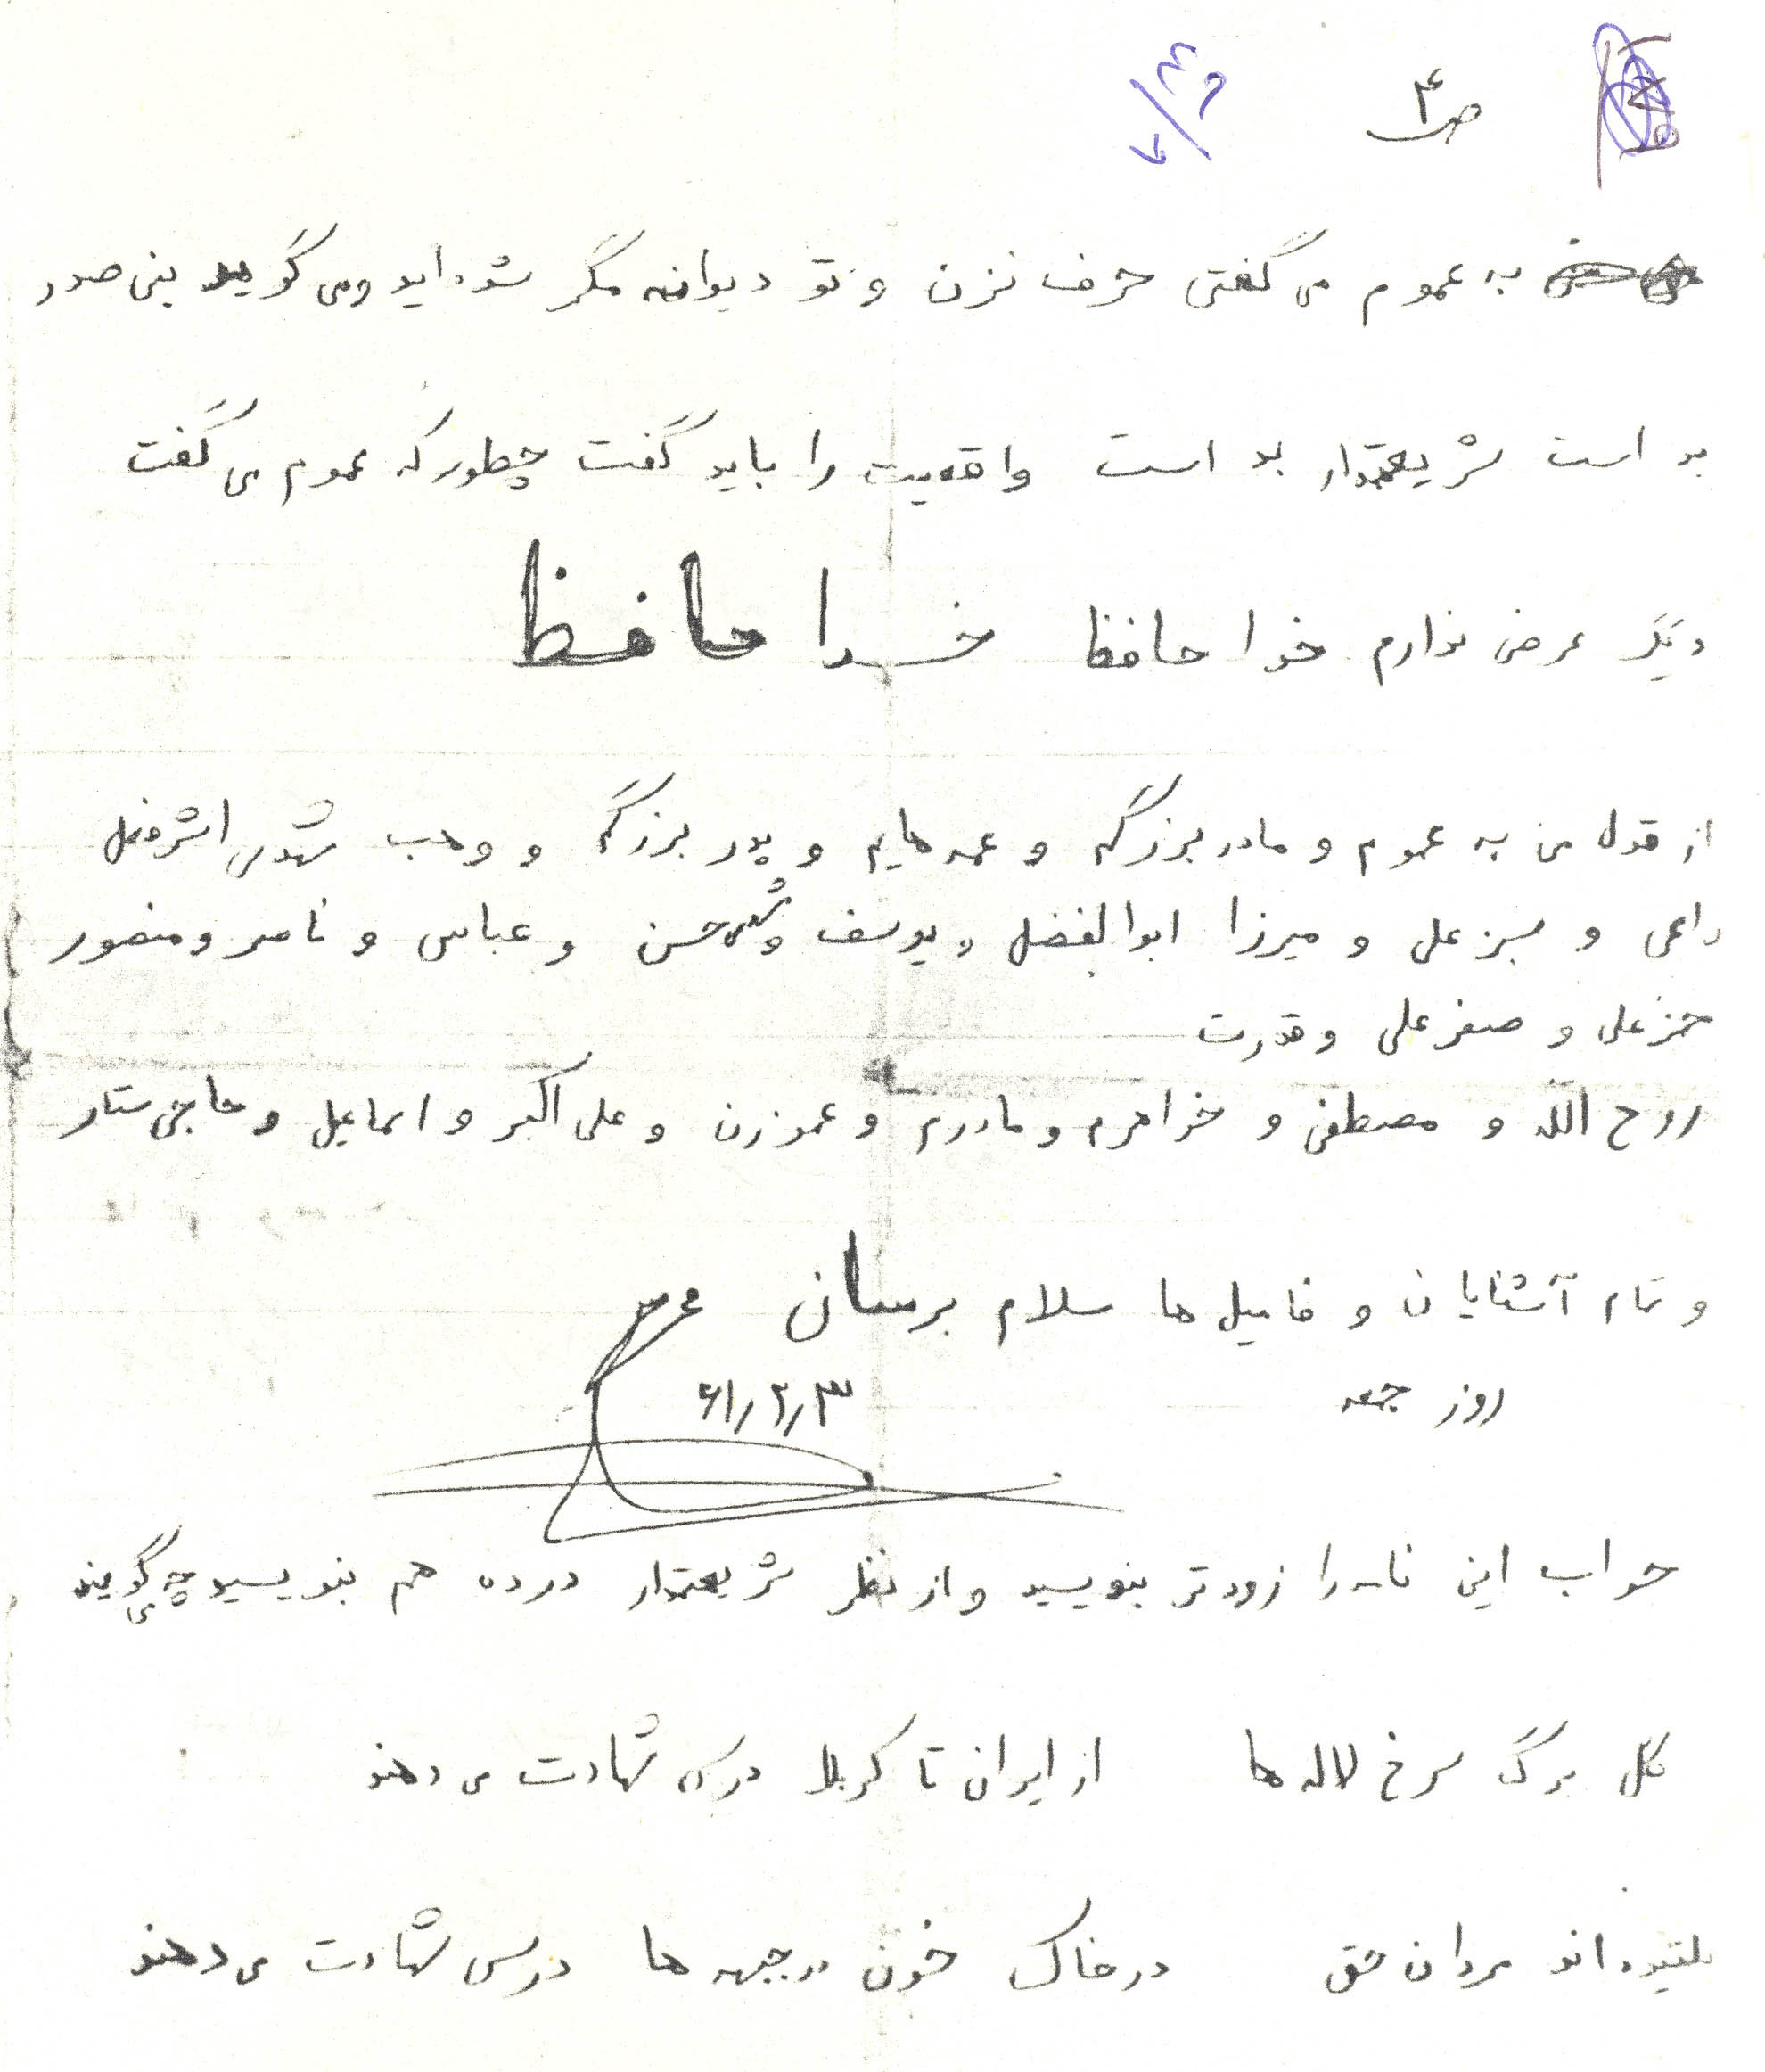 ص ۴
به عموم می گفتی حرف نزن و تو دیوانه مگر شده اید و می گویید بنی صدر
بد است شریعتمدار بد است واقعیت را باید گفت چطور که عموم می گفت
دیگر عرضی ندارم خدا حافظ خدا حافظ
از قول من به عموم و مادر بزرگم و عمه هایم و پدر بزرگم و وهب
و سبزعلی و میرزا ابوالفضل و یوسف و حسن و عباس و ناصر و منصور
حمزعلی و صفرعلی و قدرت
روح الله و مصطفی و خواهرم و مادرم و عموزن و علی اکبر و اسماعیل و حاجی ستار
و تمام آشنایان و فامیل ها سلام برسان
روز جمعه ۶۱/۲/۳
جواب این نامه را زودتر بنویسید و از نظر شریعتمدار در ده هم بنویسید چه می گویند
گل برگ سرخ لاله ها از ایران تا کربلا درس شهادت می دهند
مردان حق در خاک خون در جبهه ها درس شهادت می دهند